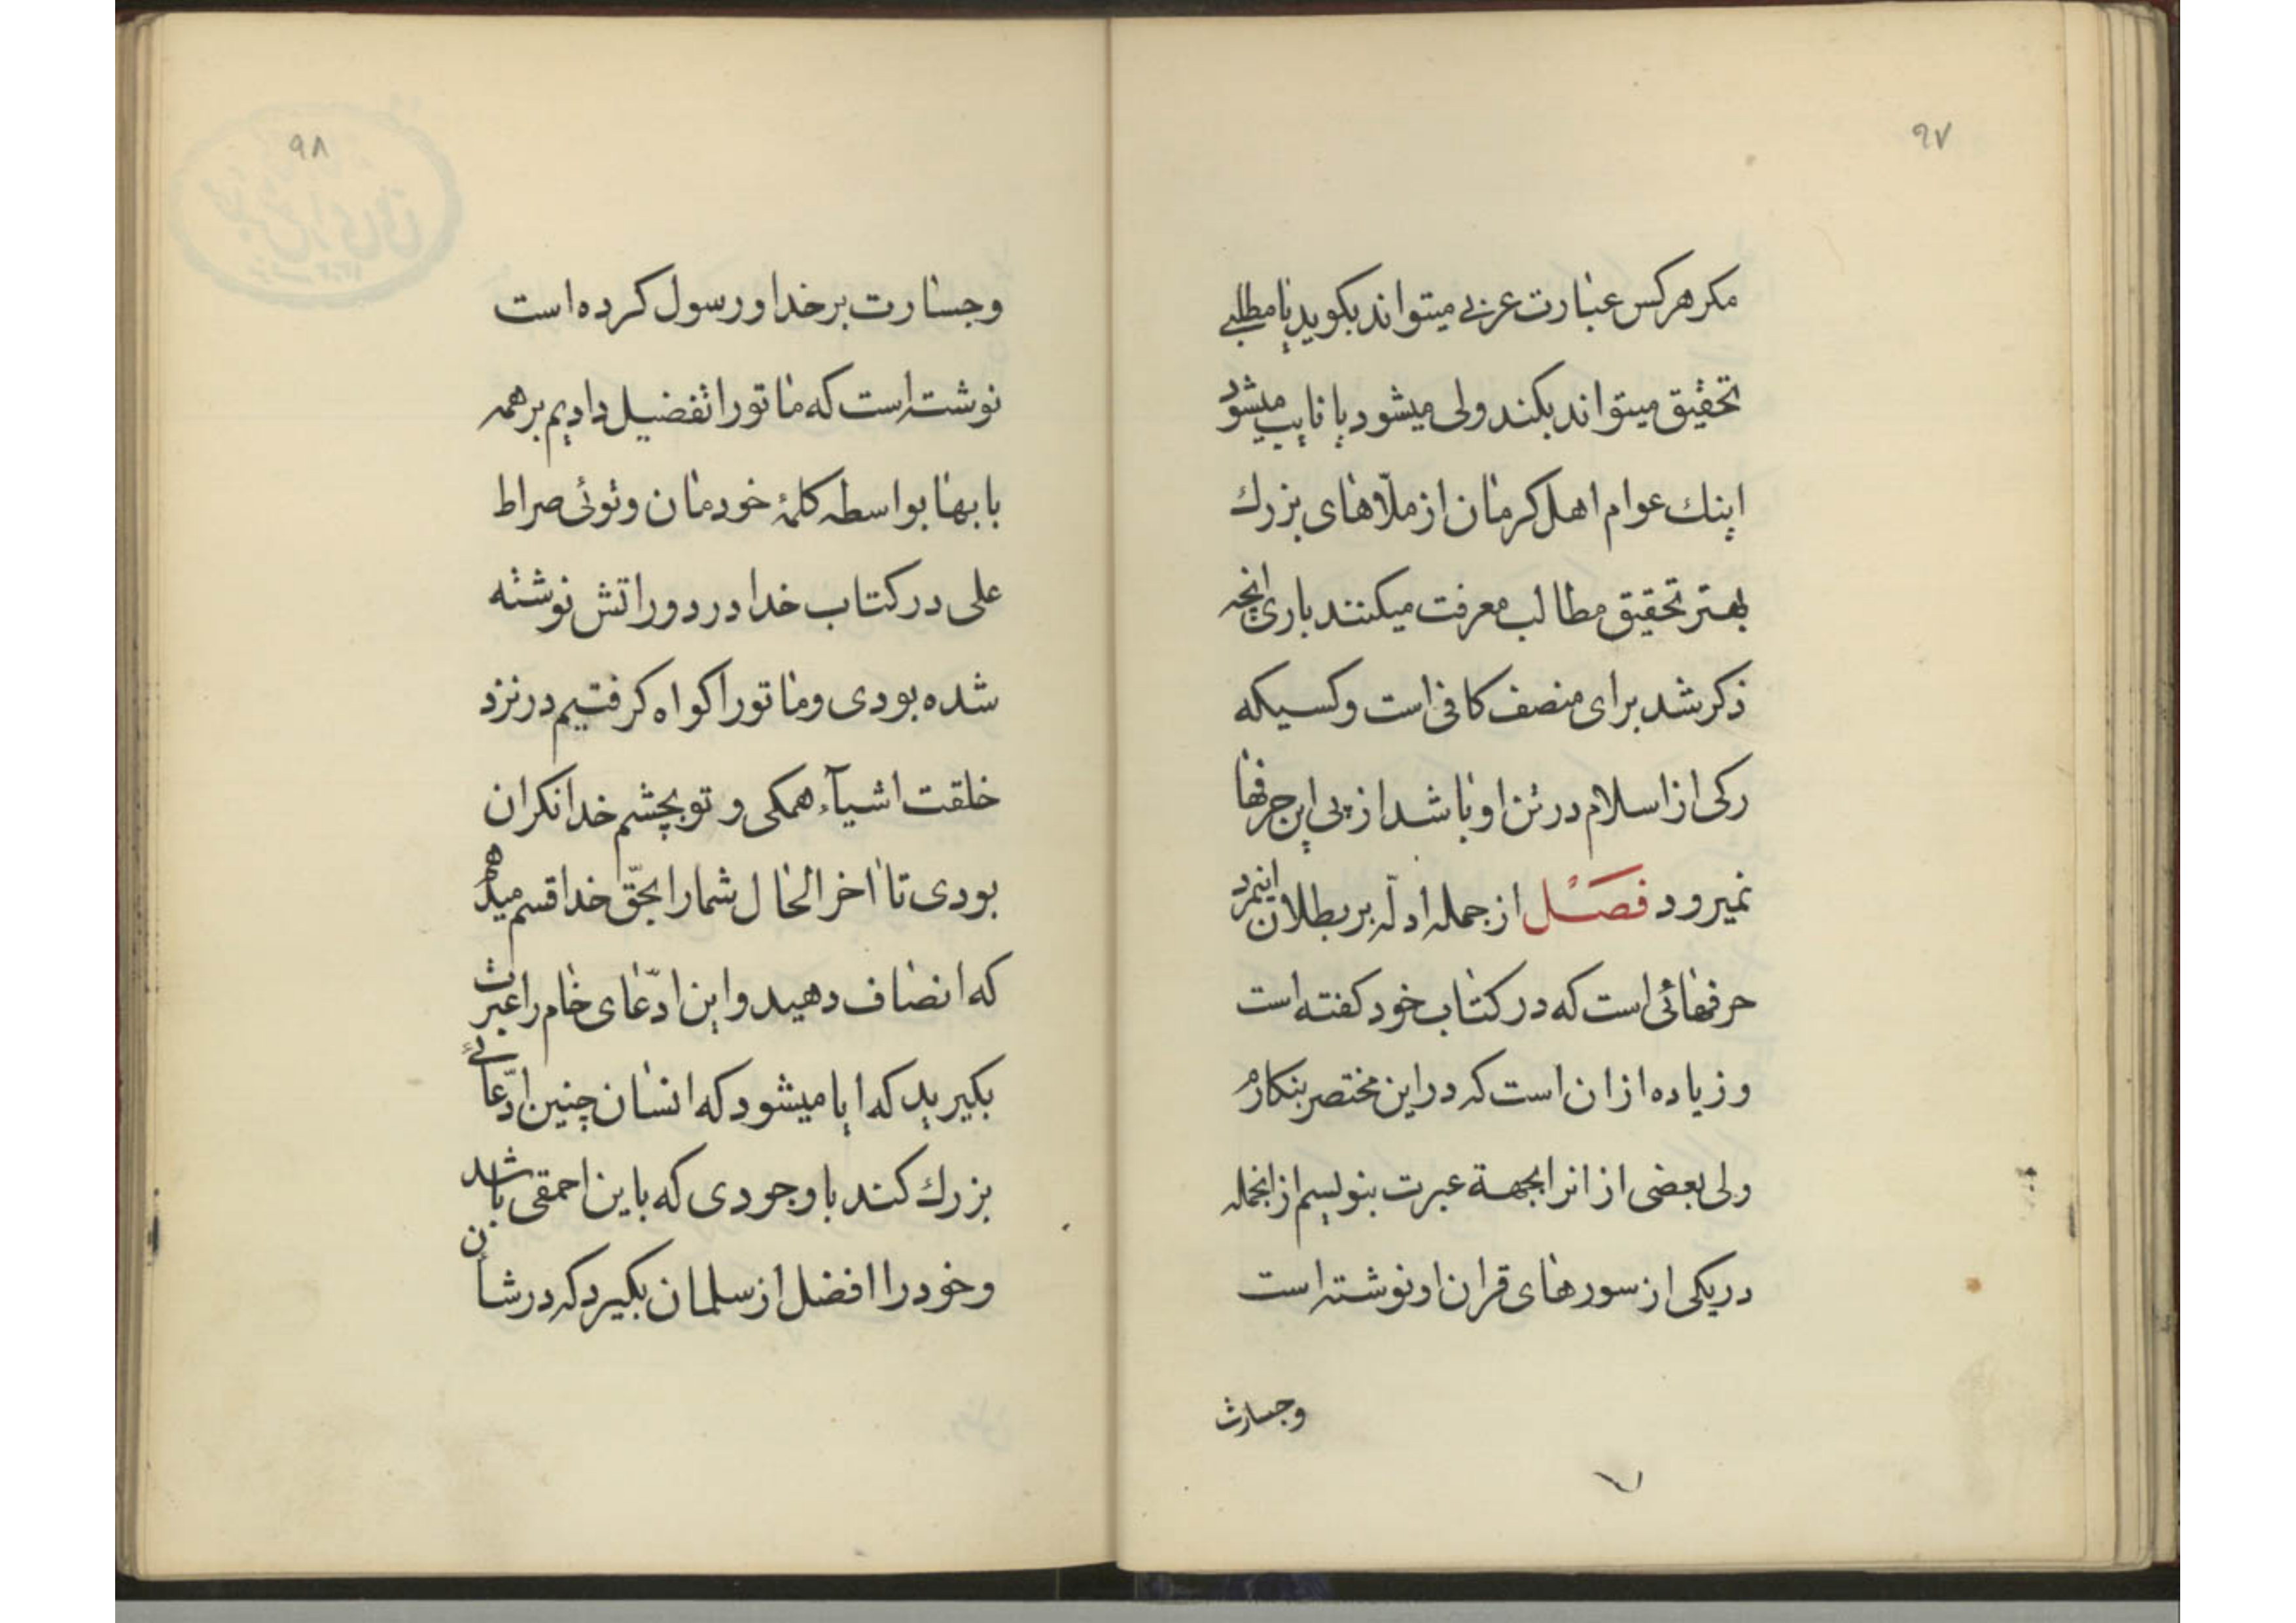 ۹۷
مکر هرکس عبارت عربی میتواند بکوید یا مطلبی
تحقیق میتواند بکند ولی میشود یا نایب میشود
اینك عوام اهل کرمان از ملّاهای بزرك
بهتر تحقیق مطالب معرفت میکنند باری انچه
ذکر شد برای منصف کافی است و کسیکه
رکی از اسلام در تن او باشد از پی این حرفها
نمیرود فصل از جمله ادلّه بر بطلان اینمرد
حرفهائی است که در کتاب خود کفته است
و زیاده از ان است که در این مختصر بنکارم
ولی بعضی از انرا بجهة عبرت بنویسم از انجمله
در یکی از سورهای قران او نوشته است
وجسارت
۹۸
وجسارت بر خدا و رسول کرده است
نوشته است که ما تو را تفضیل دادیم بر همه
بابها بواسطه کلمهٔ خودمان و توئی صراط
علی در کتاب خدا در دور اتش نوشته
شده بودی و ما تو را کواه کرفتیم در نزد
خلقت اشیآء همکی و تو بچشم خدا نکران
بودی تا اخر الحال شما را بحقّ خدا قسم میدهم
که انصاف دهید و این ادّعای خام را عبرت
بکیرید که ایا میشود که انسان چنین ادّعائی
بزرك کند با وجودی که باین احمقی باشد
و خود را افضل از سلمان بکیرد که در شأن